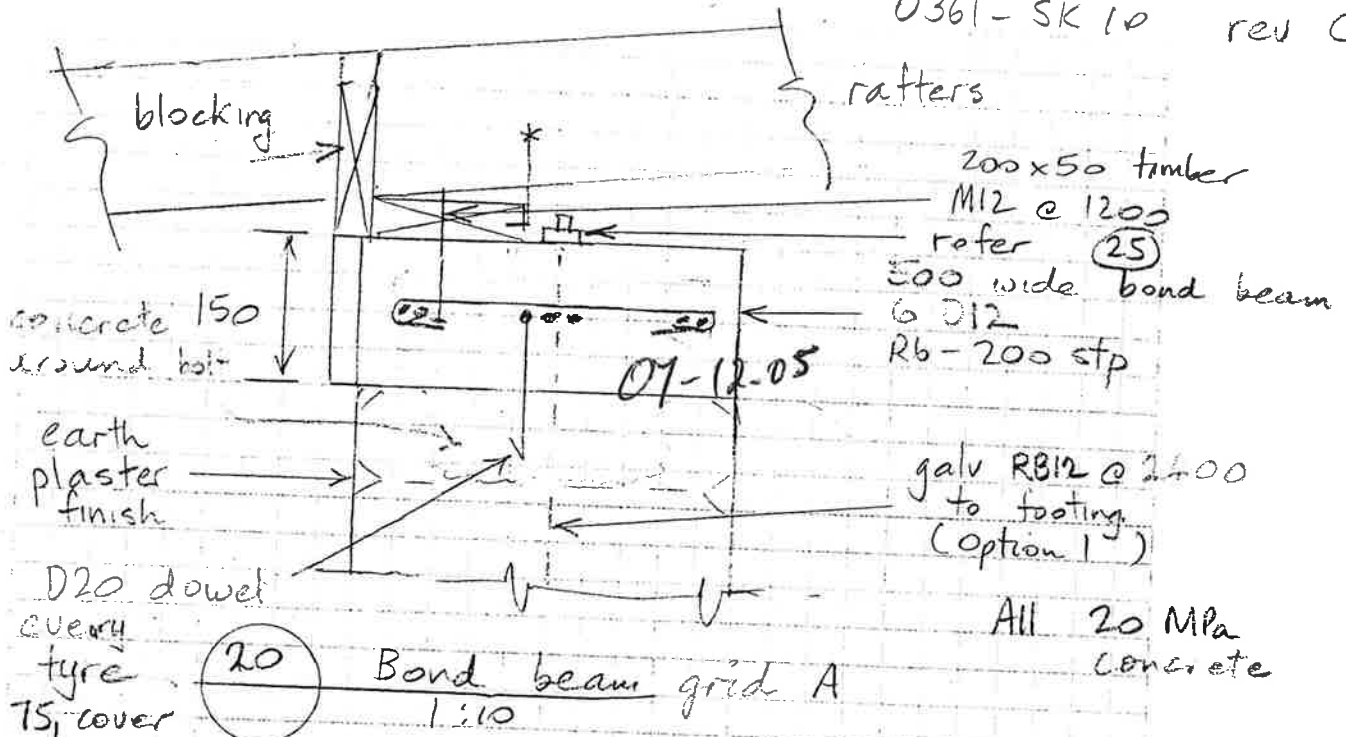 0361 - SK 10 rev C
blocking
rafters
*
200 x 50 timber
M12 @ 1200
refer 25
500 wide bond beam
6 D12
R6 - 200 stp
concrete 150
around bolt
07-12-05
earth
plaster
finish
galv RB12 @ 2400
to footing
(Option 1)
D20 dowel
every
tyre
75, cover
All 20 MPa
concrete
20 Bond beam grid A
1:10